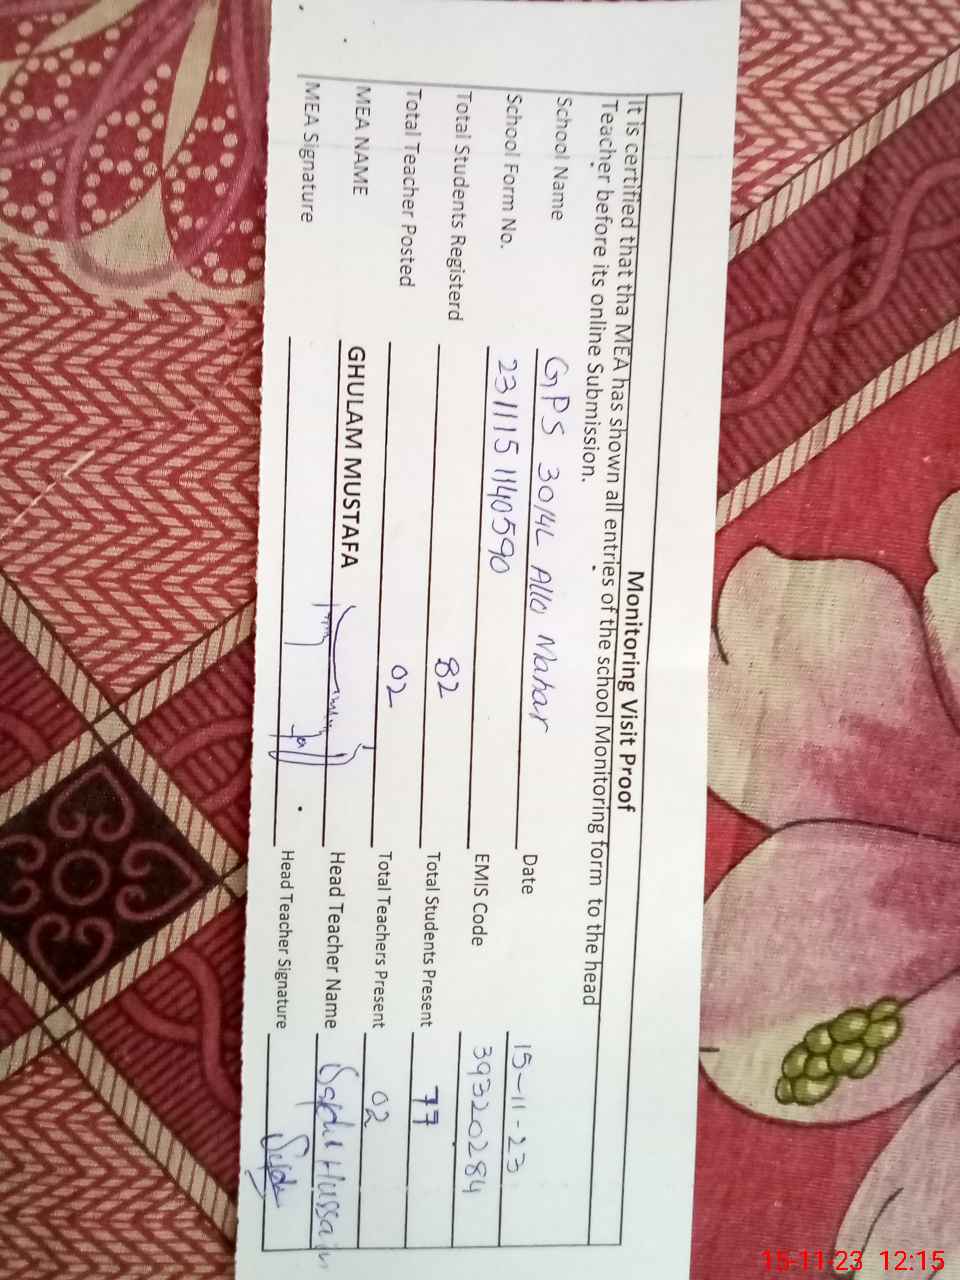 Monitoring Visit Proof
It is certified that tha MEA has shown all entries of the school Monitoring form to the head
Teacher before its online Submission.
School Name GPS 30/4L Allo Mahar Date 15-11-23
School Form No. 231115 1140590 EMIS Code 39320284
Total Students Registerd 82 Total Students Present 77
Total Teacher Posted 02 Total Teachers Present 02
MEA NAME GHULAM MUSTAFA Head Teacher Name Hussain
MEA Signature Head Teacher Signature
15-11-23 12:15